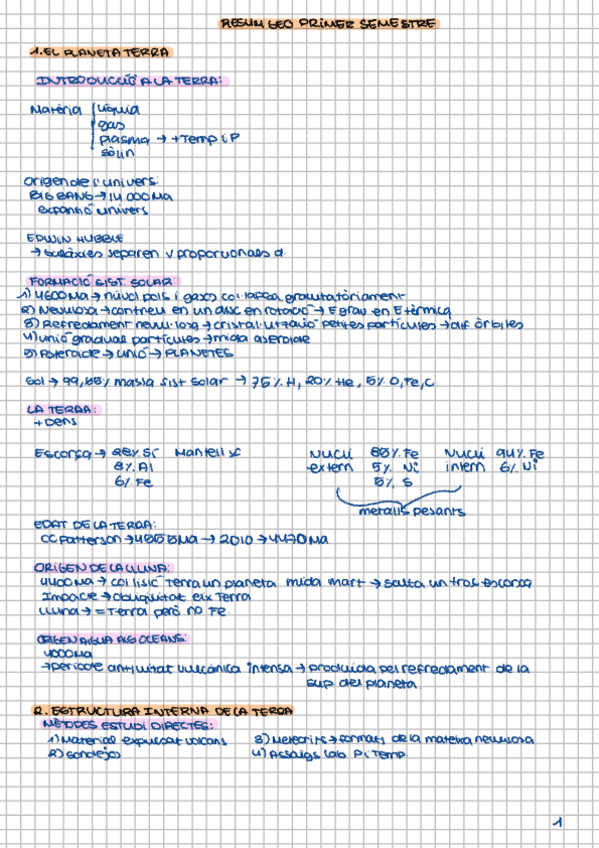 RESUM GEO PRIMER SEMESTRE
1. EL PLANETA TERRA
INTRODUCCIÓ A LA TERRA:
Matèria líquida
gas
plasma → +Temp i P
sòlin
Origen de l'univers:
BIG BANG → 14 000 Ma
expansió univers
EDWIN HUBBLE
→ Galàxies separen v proporcionals d.
FORMACIÓ SIST. SOLAR:
1) 4600 Ma → núvol pols i gasos col·lapsa gravitatòriament
2) Nebulosa → contreu en un disc en rotació → E grav en E tèrmica
3) Refredament nebulosa → cristal·lització petites partícules → dif òrbites
4) unió gradual partícules → mida asteroide
5) Asteroide → unió → PLANETES
Sol → 99,85% massa sist solar → 75% H, 20% He, 5% O, Fe, C
LA TERRA:
+ Dens
Escorça → 28% Si Mantell Nucli 85% Fe Nucli 94% Fe
8% Al extern 5% Ni intern 6% Ni
6% Fe 5% S
metalls pesants
EDAT DE LA TERRA:
CC Patterson → 4555 Ma → 2010 → 4470 Ma
ORIGEN DE LA LLUNA:
4400 Ma → col·lisió Terra un planeta mida mart → salta un tros escorça
Impacte → obliqüitat eix Terra
Lluna → = Terra però no Fe
ORIGEN AIGUA ALS OCEANS:
4000 Ma
→ període antivitat vulcànica intensa → produida pel refredament de la
sup del planeta.
2. ESTRUCTURA INTERNA DE LA TERRA
MÈTODES ESTUDI DIRECTES:
1) Material expulsat volcans 3) Meteorits → formats de la mateixa nebulosa
2) Sondejos 4) Assaigs lab P i Temp.
1